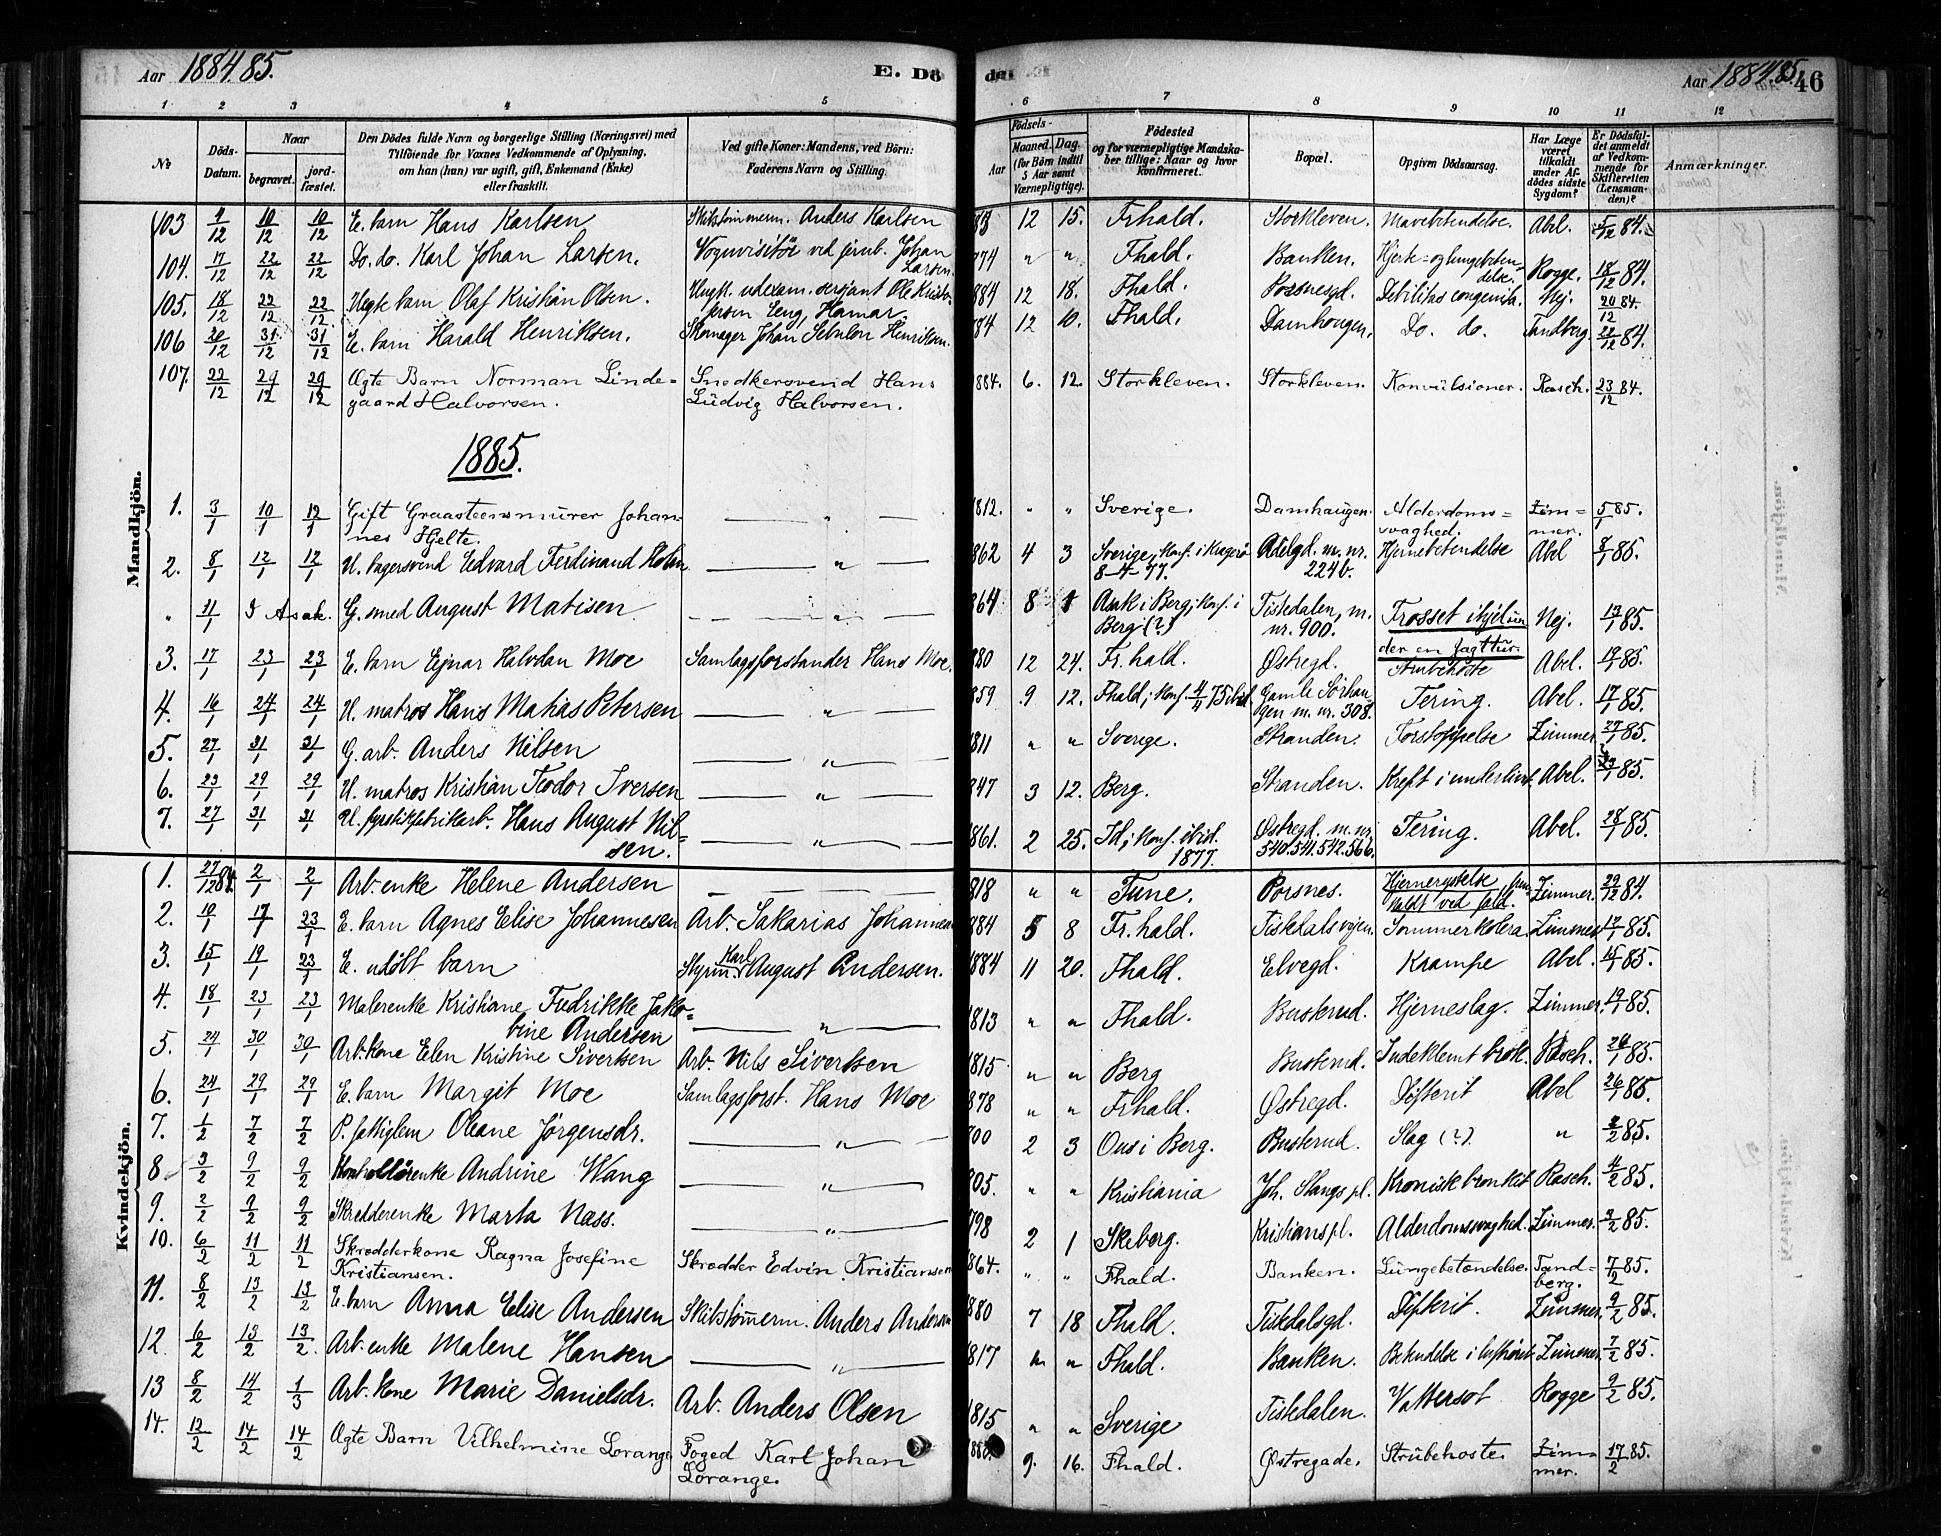 Aar 1884.85. E. Dö de. Aar 1884.85. 46
1 2 3 4 5 6 7 8 9 10 11 12
No Döds-Datum. Naar begravet. jordfæstet. Den Dödes fulde Navn og borgerlige Stilling (Næringsvei) med Tilföiende for Voxnes Vedkommende af Oplysning, om han (hun) var ugift, gift, Enkemand (Enke) eller fraskilt. Ved gifte Koner: Mandens, ved Börn: Faderens Navn og Stilling. Födsels- Aar Maaned. Dag. (for Börn indtil 5 Aar samt Værnepligtige). Födested og for værnepligtige Mandskaber tillige: Naar og hvor konfirmeret. Bopæl. Opgiven Dödsaarsag. Har Læge været tilkaldt under Afdödes sidste Sygdom? Er Dödsfaldet anmeldt af Vedkommende for Skifteretten (Lensmanden)? Anmærkninger.
Mandkjön.
103 4/12 10/12 10/12 E. barn Hans Karlsen Skibstömmerm. Anders Karlsen 83 12 15. Frhald. Storkleven. Mavebetendelse. Abel. 5/12 84.
104. 17/12 22/12 22/12 Do. do. Karl Johan Larsen. Vognvisitör ved jernb. Johan Larsen. 74 " " Fhald. Banken. Hjerte- og lungebetendelse. Rogge. 18/12 84.
105. 18/12 22/12 22/12 Uegte barn Olaf Kristian Olsen. Ungk. udexam. sersjant Ole Kristofersen Eeng, Hamar. 884 12 18. Fhald. Posnesgd. Debilitas congenita. Nej. 20/12 84.
106 20/12 31/12 31/12 E. barn Harald Henriksen. Skomager Johan Sebulon Henriksen. 84 12 10. Fhald. Damhougen. Do. do. Tandberg. 22/12 84.
107. 22/12 29/12 29/12 Ægte Barn Norman Lindegaard Halvorsen. Snedkersvend Hans Ludvig Halvorsen. 1884. 6. 12. Storkleven. Storkleven. Konvulsioner. Rasch. 23/12 84.
1885.
1. 3/1 10/1 12/1 Gift Graasteensmurer Johannes Hjelte. — " — 1812. " " Sverige. Damhaugen. Alderdomssvaghed. Zimmer. 5/1 85.
2. 8/1 12/1 12/1 U. bagersvend Edvard Ferdinand Holm — " — 862 4 3 Sverige, konf. i Kragerø 8-4-77. Adelgd. m. nr. 224b. Hjernebetendelse Abel 8/1 85.
" 11/1 I Asak. G. smed August Matisen. — " — 864 8 1 Asak i Berg; konf. i Berg (?) Tistedalen, m. nr. 900. Frosset ihjel under en Jagttur. Nej. 13/1 85.
3. 17/1 23/1 23/1 E. barn Ejnar Halvdan Moe Samlagsforstander Hans Moe. 880 12 24. Fr.hald. Østregd. Strubehoste Abel. 19/1 85.
4. 16/1 24/1 24/1 U. matros Hans Matias Petersen — " — 859 9 12. Fhald; konf. 4/4 75 ibid. Gamle Sørhaugen m. nr. 308. Tering. Abel. 17/1 85.
5. 27/1 31/1 31/1 G. arb. Anders Nilsen — " — 1811 " " Sverige. Stranden. Forstoppelse Zimmer 27/1 85.
6. 23/1 29/1 29/1 U. matros Kristian Teodor Iversen — " — 847 3 12. Berg. Stranden. Kreft i underlivet. Abel. 85.
7. 27/1 31/1 31/1 U. fyrstikfabrikarb. Hans August Nilsen. — " — 1861. 2 25. Id; konf. ibid. 1877. Østregd. m. nr. 540.541.542.566. Tering. Abel. 28/1 85.
Kvindekjön.
1. 27/12 84. 2/1 2/1 Arb.enke Helene Andersen — 818 " " Tune. Porsnes. Hjernerystelse, fremkaldt ved fald. Zimmer. 29/12 84.
2. 10/1 17/1 23/1 E. barn Agnes Elise Johannesen Arb. Sakarias Johannesen 884 5 8 Fr.hald. Tistedalsvejen. Sommerkolera. Zimmer 17/1 85.
3. 15/1 19/1 23/1 E. udøbt barn Styrm. Karl August Andersen. 1884 11 20. Fhald. Elvegd. Krampe Abel. 15/1 85.
4. 18/1 23/1 23/1 Malerenke Kristiane Fredrikke Jakobine Andersen — " — 1813 " " Fhald. Busterud. Hjerneslag. Zimmer. 19/1 85.
5. 24/1 30/1 30/1 Arb.kone Elen Kristine Sivertsen Arb. Nils Sivertsen 1815 " " Berg Busterud. Indeklemt brok. Rasch. 26/1 85.
6. 24/1 29/1 29/1 E. barn Margit Moe Samlagsforst. Hans Moe 1878 " " Frhald. Østregd. Difterit Abel 26/1 85.
7. 1/2 7/2 7/2 P. fattiglem Oleane Jørgensdr. — " — 00 2 3 Ous i Berg. Busterud. Slag (?). " 2/2 85.
8 3/2 9/2 9/2 Kontrollörenke Andrine Wang — " — 805. " " Kristiania Joh. Stangs pl. Kronisk bronkit Rasch. 4/2 85.
9. 2/2 9/2 9/2 Skredderenke Marta Næss. — " — 798 2 1 Skeberg. Kristianspl. Alderdomssvaghed. Zimmer. 3/2 85.
10. 6/2 11/2 11/2 Skrædderkone Ragna Josefine Kristiansen. Skrædder Edvin Kristiansen 864. " " Fhald. Banken. Lungebetændelse. Tandberg. 7/2 85.
11. 8/2 13/2 13/2 E. barn Anna Elise Andersen Skibstömmerm. Anders Andersen 880 7 18 Fhald. Tistedalsgd. Difterit. Zimmer. 9/2 85.
12 6/2 13/2 13/2 Arb.enke Malene Hansen — " — 1817 " " Fhald. Banken. Betendelse i luftrøret Zimmer. 7/2 85.
13 8/2 14/2 1/3 Arb.kone Marie Danielsdr. Arb. Anders Olsen 1815 " " Sverige Tistedalen. Vattersot Rogge 9/2 85.
14. 12/2 14/2 14/2 Ægte Barn Vilhelmine Lorange Foged Karl Johan Lorange. 1880. 9. 16. Fhald. Østregade. Strubehoste. Zimmer. 17/2 85.